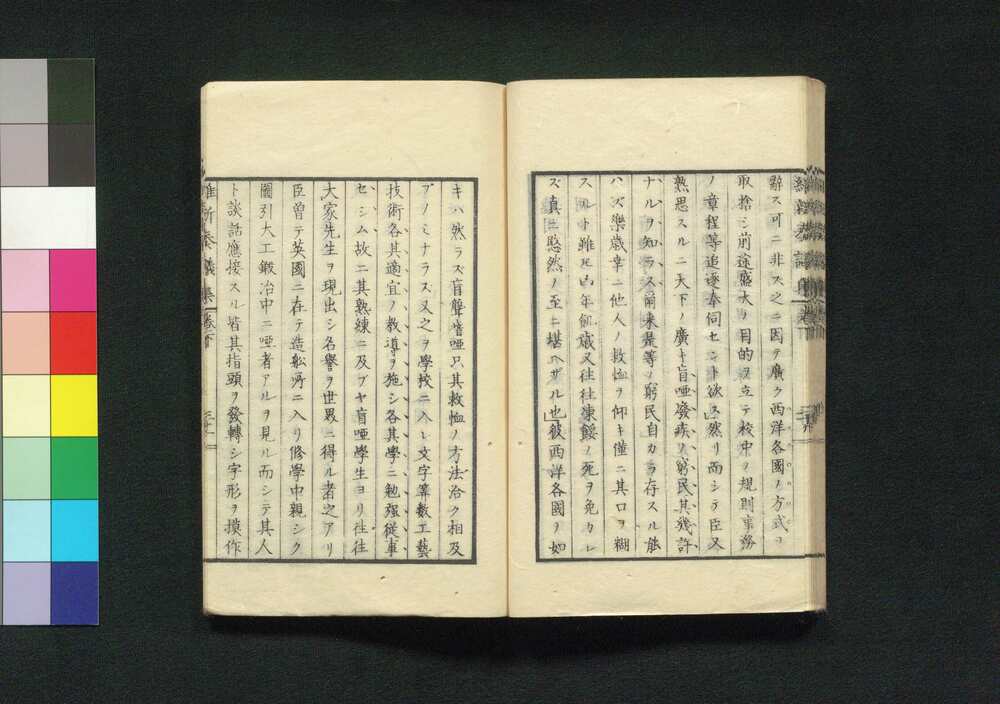 辭ス可ニ非ス之ニ因テ廣ク西洋各國ノ方式ヲ
取捨シ前途盛大ヲ目的ヲ立テ校中ヲ規則事務
ノ章程等追逐奉伺セント欲ス然リ而シテ臣又
熟思スルニ天下ノ廣キ盲啞癈疾ノ窮民其幾許
ナルヲ知ラス爾来是等ノ窮民自カラ存スル能
ハズ樂歳幸ニ他人ノ救恤ヲ仰キ僅ニ其口ヲ糊
スルト雖𪜈凶年飢歳又往往凍餒ノ死ヲ免カレ
ズ真ニ愍然ノ至ニ堪ヘザル也彼西洋各國ノ如
キハ然ラズ盲聾喑啞只其救恤ノ方法洽ク相及
ブノミナラス又之ヲ學校ニ入レ文字筭數工藝
技術各其適宜ノ教導ヲ施シ各其學ニ勉強從事
セシム故ニ其熟練ニ及ブヤ盲啞學生ヨリ往往
大家先生ヲ現出シ名譽ヲ世界ニ得ル者之アリ
臣曽テ英國ニ在テ造舩所ニ入リ修學中親シク
圖引大工鍛冶中ニ啞者アルヲ見ル而シテ其人
ト談話應接スル皆其指頭ヲ發轉シ字形ヲ摸作
維新奏議集 卷下